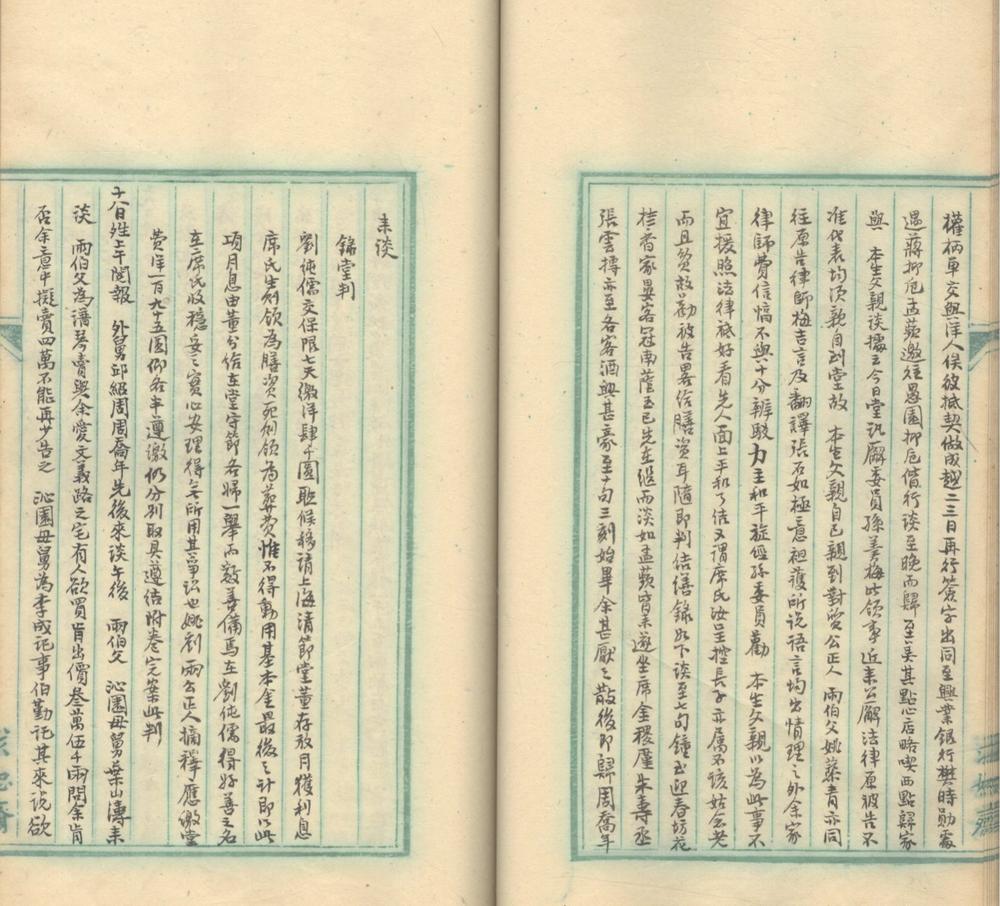 權柄單交與洋人俟彼抵契做成越二三日再行簽字出同至興業銀行樊時勛處
遇蔣抑卮孟蘋邀往愚園抑卮偕行談至晚而歸至吳其點心店略喫西點歸家
與　本生父親談據云今日堂訊廨委員孫羹梅此領事近來公廨法律原被告不
准代表均須親自到堂故　本生父親自己親到對愛公正人　雨伯父姚慕青亦同
往原告律師梅吉言及翻譯張石如極意袒護所說語言均出情理之外余家
律師費信惇不與十分辨駁力主和平旋經孫委員勸　本生父親以為此事不
宜援照法律祗好看先人面上平和了結又謂席氏汝呈控長子亦属不該姑念老
而且貧故勸被告畧給膳資耳隨即判結繕錄如下談至七句鐘出迎春坊花
桂香家晏客冠南蔭玉已先在繼而淡如孟蘋皆來遂坐席金稷廑朱專丞
張雲摶亦至各客酒興甚豪至十句三刻始畢余甚厭之散後即歸周喬年
來談
錄堂判
劉純儒交保限七天繳洋肆千圓聽候移請上海清節堂董存放月獲利息
席氏生則領為膳資死則領為葬費惟不得動用基本金最後之計即以此
項月息由董分給在堂守節各婦一舉而數善備焉在劉純儒得好善之名
在席氏收穩妥之實心安理得無所用其爭訟也姚劉兩公正人摘釋應繳堂
費洋一百九十五圓仰各半遵繳仍分別取具遵結附卷完案此判
十八日姓上午閱報　外舅邱紹周周喬年先後來談午後　雨伯父　沁園母舅葉山濤來
談　雨伯父為潘琴賣與余愛文義路之宅有人欲買肯出價叁萬伍千兩問余肯
否余意中擬賣四萬不能再少告之　沁園母舅為李成記事伯勤託其來說欲